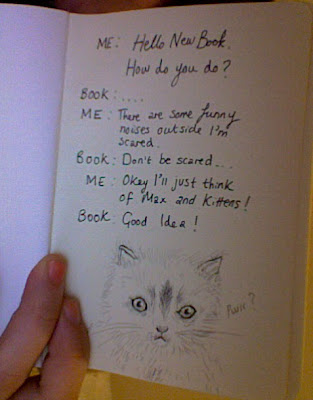 ME: Hello New Book.
How do you do?
BOOK: ....
ME: There are some funny
noises outside I'm
scared.
BOOK: Don't be scared...
ME: Okay I'll just think
of Max and Kittens!
BOOK: Good Idea!
Purr?